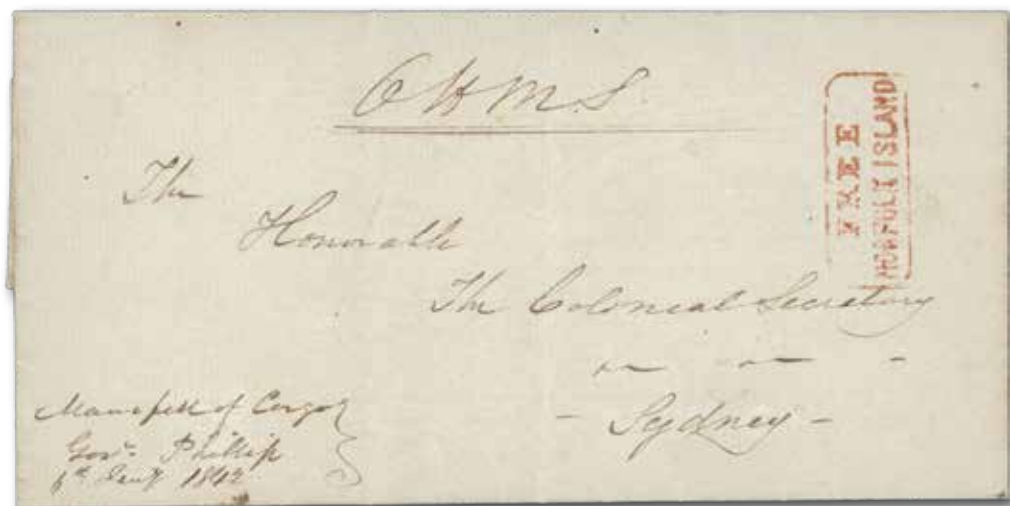 OHMS
FREE
NORFOLK ISLAND
The
Honorable
The Colonial Secretary
- Sydney -
Manifest of Cargo
Govr. Phillip
6th Jany 1842